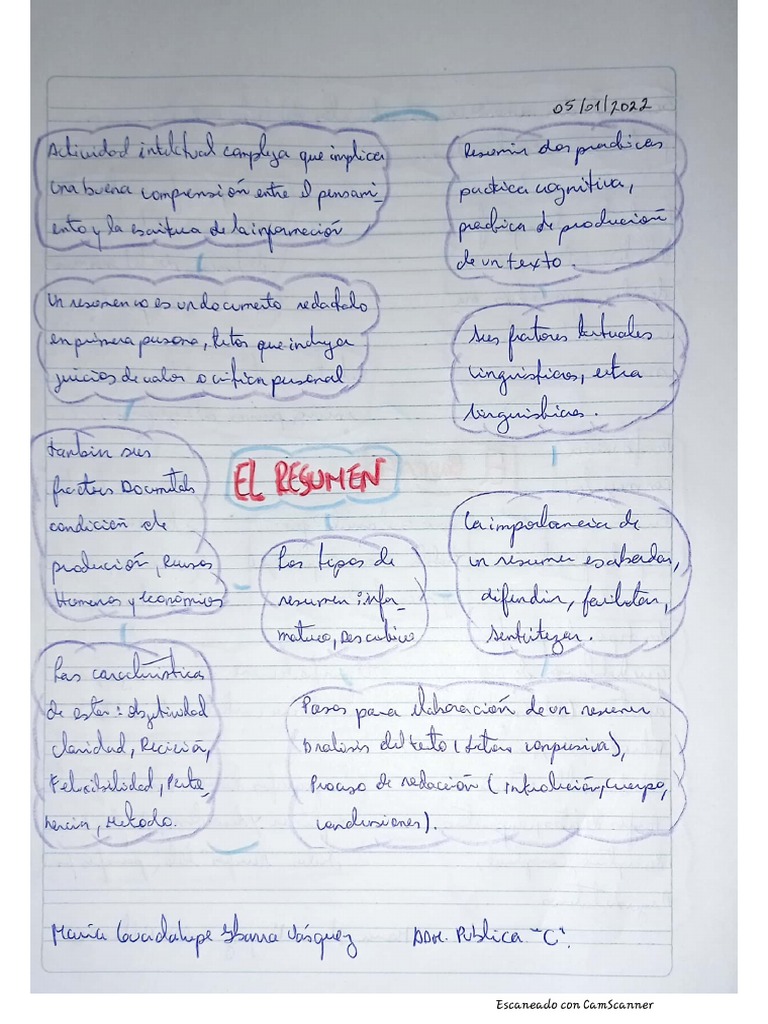 05/01/2022
Actividad intelctual compleja que implica
una buena comprensión entre el pensami-
ento y la escritura de la información
Resumir dos practicas
practica cognitiva,
practica de produción
de un texto.
Un resumen no es un documento redactado
en primera persona, textos que incluya
juicios de valor o critica personal
Sus fratores textuales
linguisticos, extra
linguisticos.
tambin sus
fractores Documtales
condición de
produción, Recusos
Humanos y económicos
EL RESUMEN
Los tipos de
resumen: infor-
mativo, Descritivo
La importancia de
un resumen es abordar,
difundir, facilitar,
sentitizar.
Las caracteristicas
de estar: objetividad
claridad, Recición,
Felxibilidad, Perte-
nencia, Metodo.
Pasos para elaboración de un resumen
Analisis del texto (lectura conpresiva),
Proceso de redacción (introlución, cuerpo,
conclusiones).
Maria Guadalupe Ibarra Vásquez ADM. Publica "C".
Escaneado con CamScanner